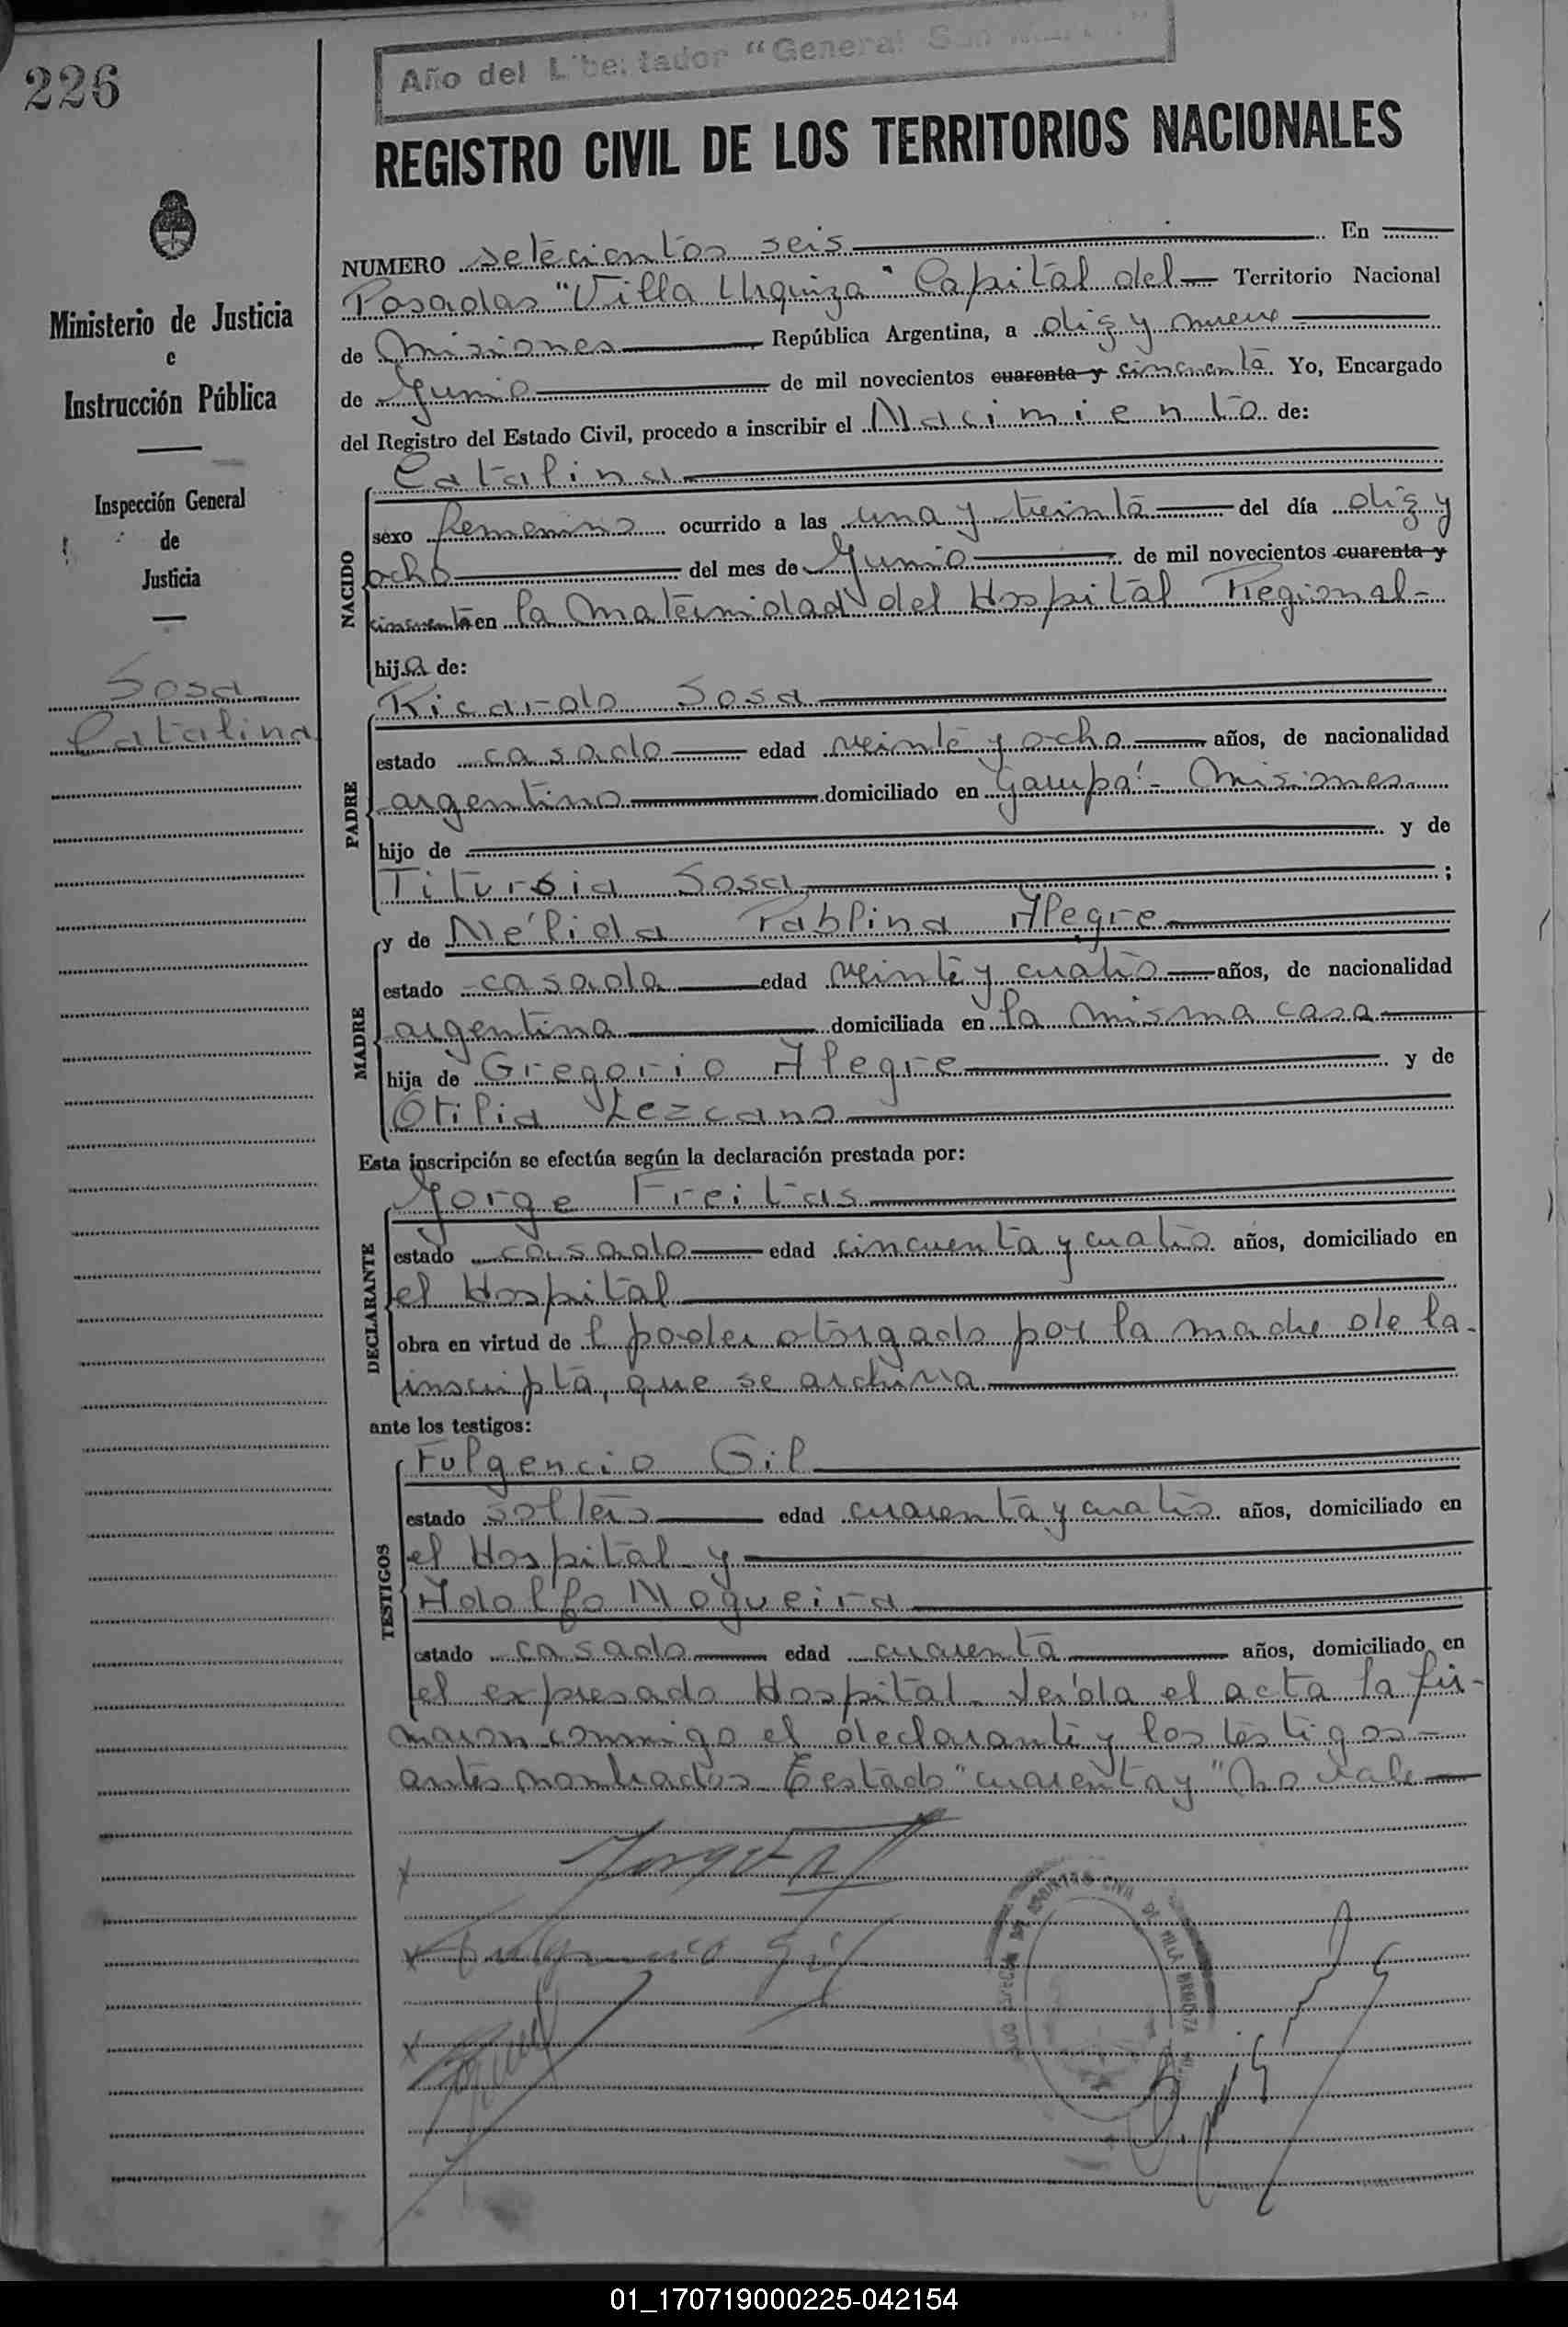 226
Año del Libertador "General San
REGISTRO CIVIL DE LOS TERRITORIOS NACIONALES
Ministerio de Justicia
e
Instrucción Pública
Inspección General
de
Justicia
Sosa
Catalina
NUMERO setecientos seis En
Posadas "Villa Urquiza" Capital del Territorio Nacional
de Misiones República Argentina, a diez y nueve
de Junio de mil novecientos cuarenta y cincuenta Yo, Encargado
del Registro del Estado Civil, procedo a inscribir el Nacimiento de:
Catalina
NACIDO
sexo femenino ocurrido a las una y treinta del día diez y
ocho del mes de Junio de mil novecientos cuarenta y
cincuenta en la Maternidad del Hospital Regional-
hija de:
Ricardo Sosa
PADRE
estado casado edad veinte y ocho años, de nacionalidad
argentino domiciliado en Garupá - Misiones
hijo de y de
Sosa ;
y de Nélida Pablina Alegre
MADRE
estado casada edad veinte y cuatro años, de nacionalidad
argentina domiciliada en la misma casa
hija de Gregorio Alegre y de
Otilia Lezcano
Esta inscripción se efectúa según la declaración prestada por:
Jorge Freitas
DECLARANTE
estado casado edad cincuenta y cuatro años, domiciliado en
el Hospital
obra en virtud de l poder otorgado por la madre de la
inscripta, que se archiva
ante los testigos:
Fulgencio Gil
TESTIGOS
estado soltero edad cuarenta y cuatro años, domiciliado en
el Hospital y
Adolfo Nogueira
estado casado edad cuarenta años, domiciliado en
el expresado Hospital. Leída el acta la fir-
maron conmigo el declarante y los testigos
antes nombrados. Testado "cuarenta y" No vale
Fulgencio Gil
01_170719000225-042154